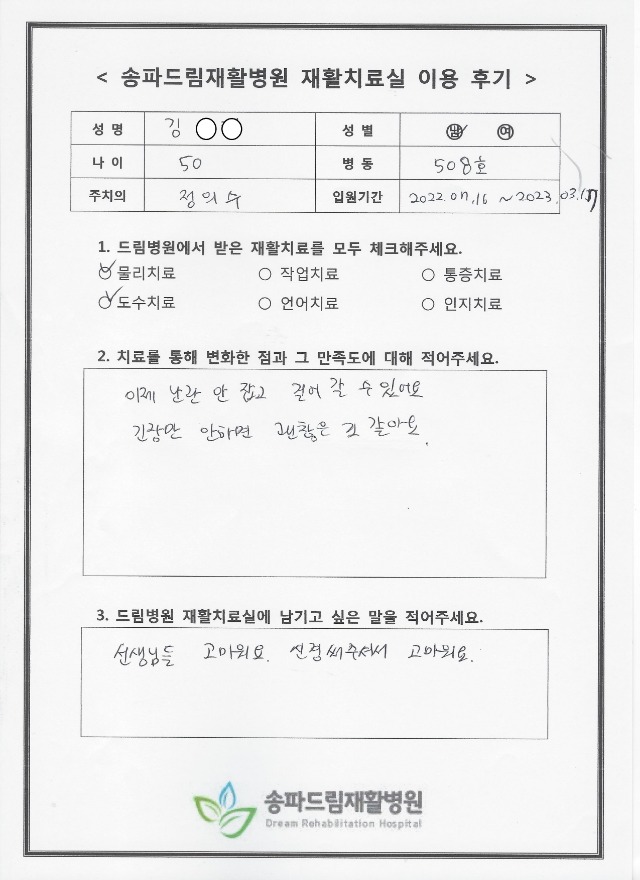 < 송파드림재활병원 재활치료실 이용 후기 >
성 명 김 ○○ 성 별 남 여
나 이 50 병 동 508호
주치의 정의수 입원기간 2022.07.16 ~ 2023.03.17
1. 드림병원에서 받은 재활치료를 모두 체크해주세요.
물리치료 ○ 작업치료 ○ 통증치료
도수치료 ○ 언어치료 ○ 인지치료
2. 치료를 통해 변화한 점과 그 만족도에 대해 적어주세요.
이제 난간 안 잡고 걸어 갈 수 있어요
긴장만 안하면 괜찮은 것 같아요.
3. 드림병원 재활치료실에 남기고 싶은 말을 적어주세요.
선생님들 고마워요. 신경써주셔서 고마워요.
송파드림재활병원
Dream Rehabilitation Hospital